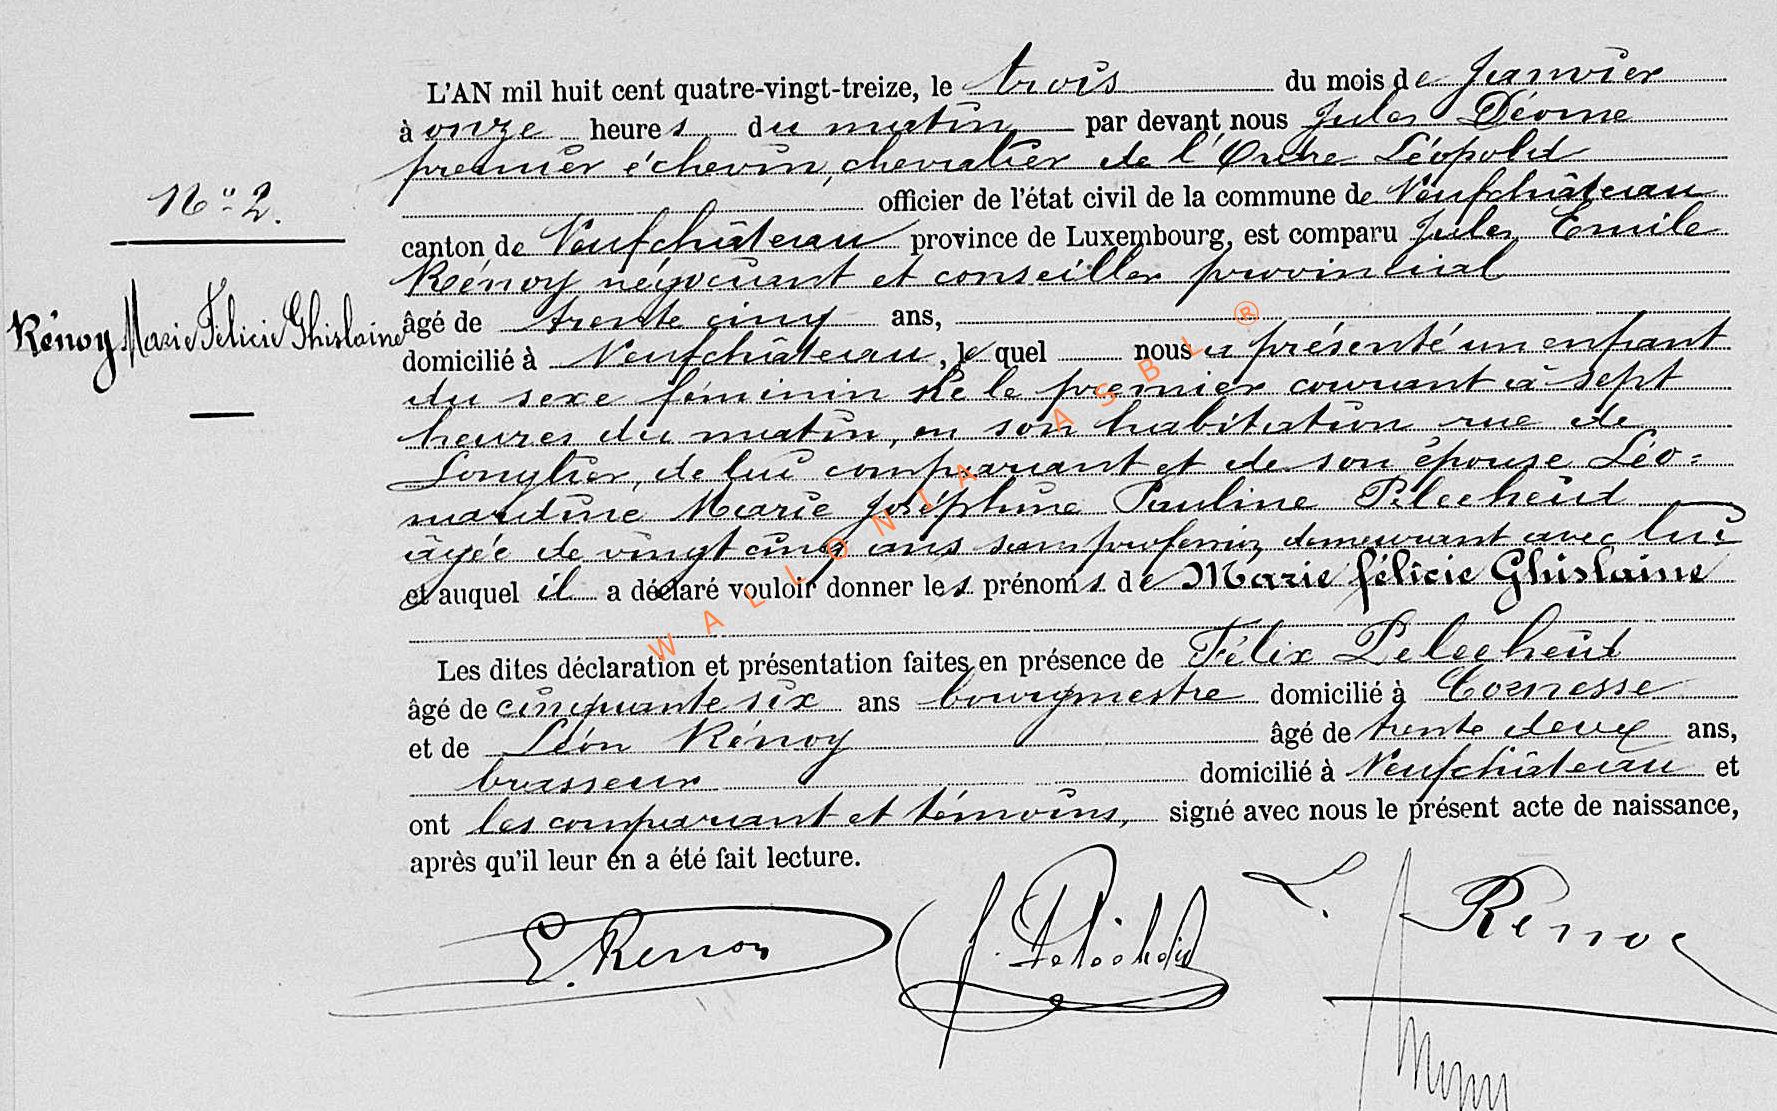 L'AN mil huit cent quatre-vingt-treize, le trois du mois de Janvier
à onze heures du matin par devant nous Jules Déome
premier échevin, chevalier de l'Ordre Léopold
N° 2.
officier de l'état civil de la commune de Neufchâteau
canton de Neufchâteau province de Luxembourg, est comparu Jules Emile
Rénoy négociant et conseiller provincial
Rénoy Marie Félicie Ghislaine
âgé de trente cinq ans,
domicilié à Neufchâteau, le quel nous a présenté un enfant
du sexe féminin né le premier courant à sept
heures du matin, en son habitation rue de
Longlier, de lui comparant et de son épouse Léo=
nardine Marie Joséphine Pauline Pelecheid
âgée de vingt cinq ans sans profession demeurant avec lui
et auquel il a déclaré vouloir donner les prénoms de Marie Félicie Ghislaine
Les dites déclaration et présentation faites en présence de Félix Pelecheid
âgé de cinquante six ans bourgmestre domicilié à Cornesse
et de Léon Rénoy âgé de trente deux ans,
brasseur domicilié à Neufchâteau et
ont les comparant et témoins, signé avec nous le présent acte de naissance,
après qu'il leur en a été fait lecture.
E. Renoy
f. Pelecheid
L. Rénoy
WALLONIA ASBL ®